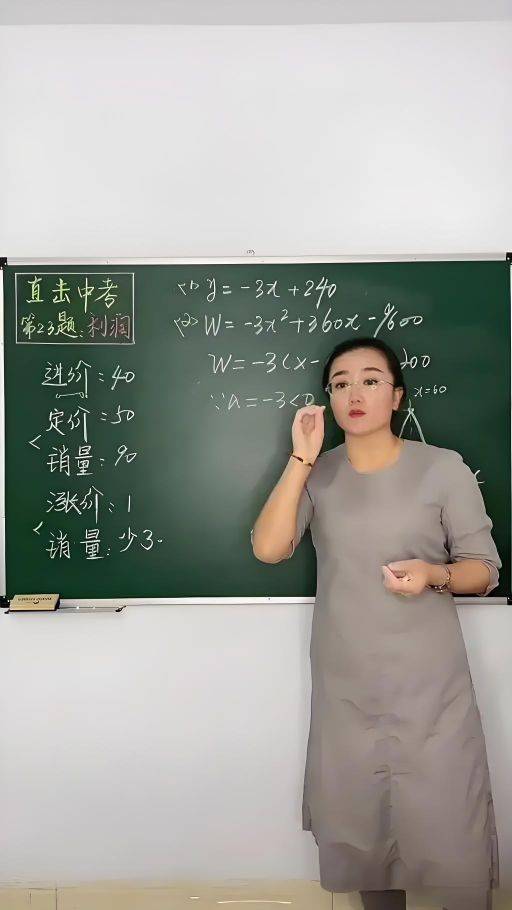 直击中考
第23题:利润
进价:40
定价:50
销量:90
涨价:1
销量:少3.
<1> y=-3x+240
<2> W=-3x²+360x-9600
W=-3(x-
200
∵a=-3<0
x=60